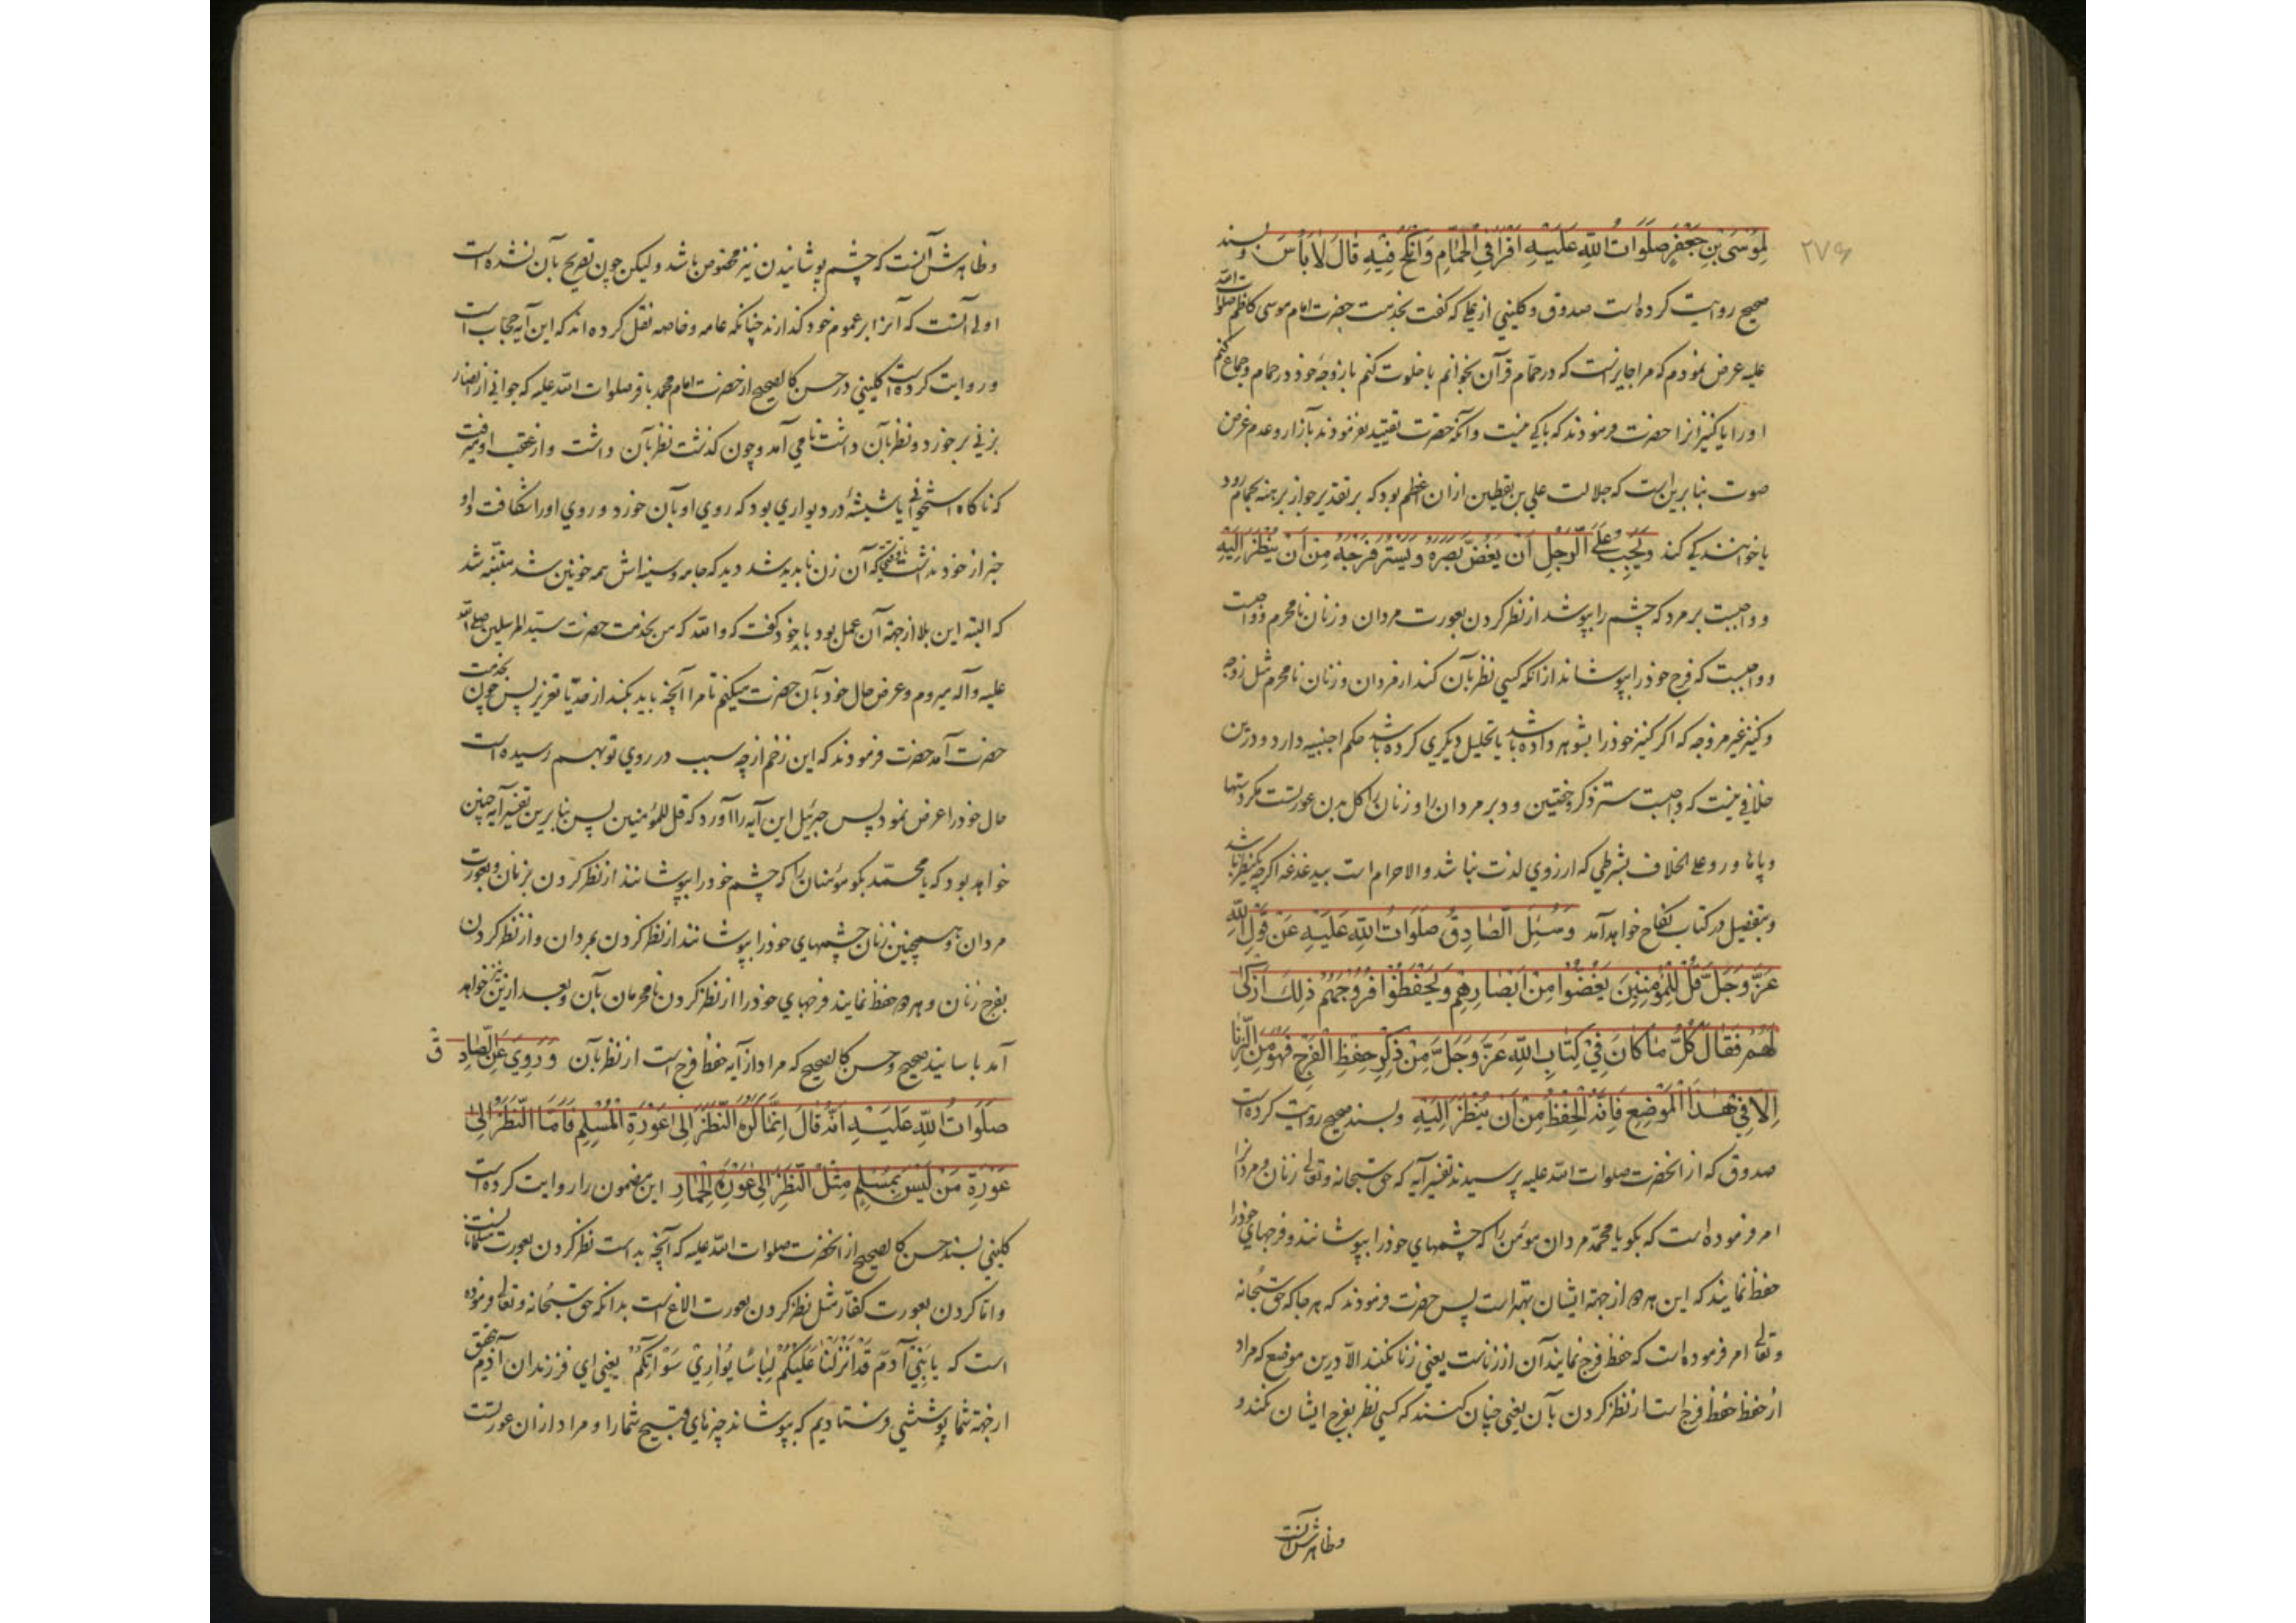 ۲۷۶
لِمُوسَی بْنِ جَعْفَرٍ صَلَوَاتُ اللّهِ عَلَیْهِ اَقْرَأُ فِی الْحَمَّامِ وَاَنْکِحُ فِیْهِ قَالَ لاٰ بَأْسَ وبسند
صحیح روایت کرده است صدوق و کلینی از علی که گفت بخدمت حضرت امام موسی کاظم صلوات الله
علیه عرض نمودم که مرا جایز است که در حمّام قرآن بخوانم یا خلوت کنم با زوجهٔ خود در حمام و جماع کنم
او را یا کنیزانرا حضرت فرمودند که باکی نیست و آنکه حضرت تقیید نفرمودند بآزار و عدم غرض
صوت بنابرین است که جلالت علی بن یقطین ازان اعظم بود که بر تقدیر جواز برهنه بحمام رود
یا خوانندکی کند وَیَجِبُ عَلَی الرَّجُلِ اَنْ یَغُضَّ بَصَرَهُ وَیَسْتُرَ فَرْجَهُ مِنْ اَنْ یُنْظَرَ اِلَیْهِ
و واجبست بر مرد که چشم را بپوشد از نظر کردن بعورت مردان و زنان نامحرم و واجبست
و واجبست که فرج خود را بپوشاند از انکه کسی نظر بآن کند از مردان و زنان نامحرم مثل زوجه
و کنیز غیر مزوجه که اکر کنیز خود را بشوهر داده باشد یا تحلیل دیکری کرده باشد حکم اجنبیه دارد و درین
خلافی نیست که واجبست ستر ذکر و خصیتین و دبر مردان را و زنان را کل بدن عورتست مکر دستها
و پاها و رو علی الخلاف بشرطی که از روی لذت نباشد والا حرام است بیدغدغه اکرچه یکنظر باشد
و بتفصیل در کتاب نکاح خواهد آمد وَسُئِلَ الصّٰادِقُ صَلَوَاتُ اللّهِ عَلَیْهِ عَنْ قَوْلِ اللّهِ
عَزَّ وَجَلَّ قُلْ لِلْمُؤْمِنِینَ یَغُضُّوا مِنْ اَبْصٰارِهِمْ وَیَحْفَظُوا فُرُوجَهُمْ ذٰلِکَ اَزْکٰی
لَهُمْ فَقٰالَ کُلُّ مٰا کٰانَ فِی کِتٰابِ اللّهِ عَزَّ وَجَلَّ مِنْ ذِکْرِ حِفْظِ الْفَرْجِ فَهُوَ مِنَ الزِّنٰا
اِلاّٰ فِی هٰذَا الْمَوْضِعِ فَاِنَّهُ الْحِفْظُ مِنْ اَنْ یُنْظَرَ اِلَیْهِ وبسند صحیح روایت کرده است
صدوق که از انحضرت صلوات الله علیه پرسیدند تفسیر آیه که حق سبحانه و تعالی زنان و مردانرا
امر فرموده است که بکو یا محمّد مردان مؤمن را که چشمهای خود را بپوشانند و فرجهای خود را
حفظ نمایند که این هر دو از جهة ایشان بهتر است پس حضرت فرمودند که هر جا که حق سبحانه
و تعالی امر فرموده است که حفظ فرج نمایند آن از زناست یعنی زنا نکنند الاّ درین موضع که مراد
از حفظ حفظ فرج است از نظر کردن بآن یعنی چنان کنند که کسی نظر بفرج ایشان نکند و
وظاهرش آنست
وظاهرش آنست که چشم پوشانیدن نیز مخصوص باشد و لیکن چون تصریح بآن نشده است
اولی آنست که آنرا بر عموم خود کذارند چنانکه عامه و خاصه نقل کرده اند که این آیه حجاب است
و روایت کرده است کلینی در حسن کالصحیح از حضرت امام محمد باقر صلوات الله علیه که جوانی از انصار
بزنی برخورد و نظر بآن داشت تا می آمد و چون کذشت نظر بآن داشت و از عقب او میرفت
که ناکاه استخوانی یا شیشهٔ در دیواری بود که روی او بآن خورد و روی او را شکافت و او
خبر از خود نداشت تا وقتیکه آن زن ناپدید شد دید که جامه و سینه اش همه خونین شد متنبّه شد
که البته این بلا از جهة آن عمل بود با خود کفت که والله که من بخدمت حضرت سیّد المرسلین صلی الله
علیه وآله میروم و عرض حال خود بآن حضرت میکنم تا مرا آنچه باید بکند از حدّ یا تعزیر پس چون بخدمت
حضرت آمد حضرت فرمودند که این زخم از چه سبب در روی تو بهم رسیده است
حال خود را عرض نمود پس جبرئیل این آیه را آورد که قل للمؤمنین پس بنابرین تفسیر آیه چنین
خواهد بود که یا محمّد بکو مؤمنان را که چشم خود را بپوشانند از نظر کردن بزنان و بعورت
مردان و همچنین زنان چشمهای خود را بپوشانند از نظر کردن بمردان و از نظر کردن
بفرج زنان و هر دو حفظ نمایند فرجهای خود را از نظر کردن نامحرمان بآن و بعد ازین نیز خواهد
آمد باسانید صحیح و حسن کالصحیح که مراد از آیه حفظ فرج است از نظر بآن وَرُوِیَ عَنِ الصّٰادِقِ
صَلَوَاتُ اللّهِ عَلَیْهِ اَنَّهُ قٰالَ اِنَّمٰا کُرِهَ النَّظَرُ اِلیٰ عَوْرَةِ الْمُسْلِمِ فَاَمَّا النَّظَرُ اِلیٰ
عَوْرَةِ مَنْ لَیْسَ بِمُسْلِمٍ مِثْلُ النَّظَرِ اِلیٰ عَوْرَةِ الْحِمٰارِ این مضمون را روایت کرده است
کلینی بسند حسن کالصحیح از انحضرت صلوات الله علیه که آنچه بد است نظر کردن بعورت مسلمانانست
و اما کردن بعورت کفّار مثل نظر کردن بعورت الاغ است بدانکه حق سبحانه و تعالی فرموده
است که یٰا بَنِی آدَمَ قَدْ اَنْزَلْنٰا عَلَیْکُمْ لِبٰاسًا یُوٰارِی سَوْآتِکُمْ یعنی ای فرزندان آدم بتحقیق
از جهة شما پوششی فرستادیم که بپوشاند چیزهای قبیح شما را و مراد ازان عورتست